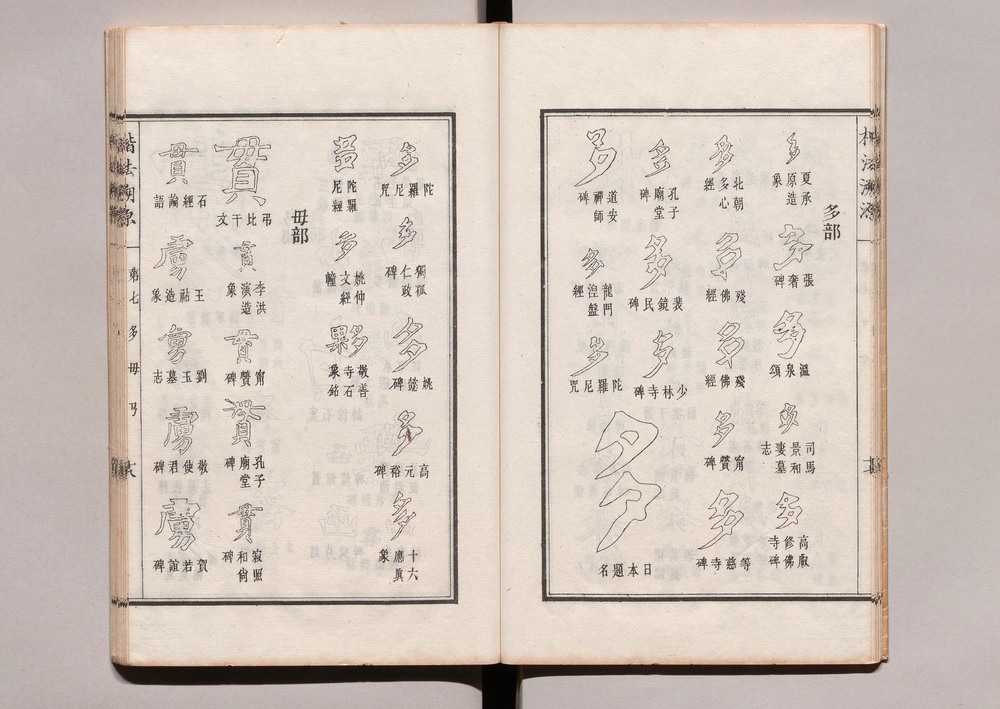 多部
多
夏承
原造
象
多
張
奢碑
多
溫泉頌
多
司馬
景和
妻墓
志
多
高叡
修佛
寺碑
多
北朝
多心
經
多
殘佛經
多
殘佛經
多
甯贊碑
多
等慈寺碑
多
孔子
廟堂
碑
多
裴鏡民碑
多
少林寺碑
多
日本題名
多
道安
禪師
碑
多
龍門
涅盤
經
多
陀羅尼咒
多
陀羅尼咒
多
獨孤
仁政
碑
多
姚懿碑
多
高元裕碑
多
十六
應真
象
多
陀羅
尼經
多
姚仲
文經
幢
夥
敬善
寺石
象銘
毌部
貫
弔比干文
貫
李洪
演造
象
貫
甯贊碑
貫
孔子
廟堂
碑
貫
寂照
和尙
碑
貫
石經論語
虜
王祜造象
虜
劉玉墓志
虜
敬使君碑
虜
賀若誼碑
楷法溯源
第七 多 毌 丂